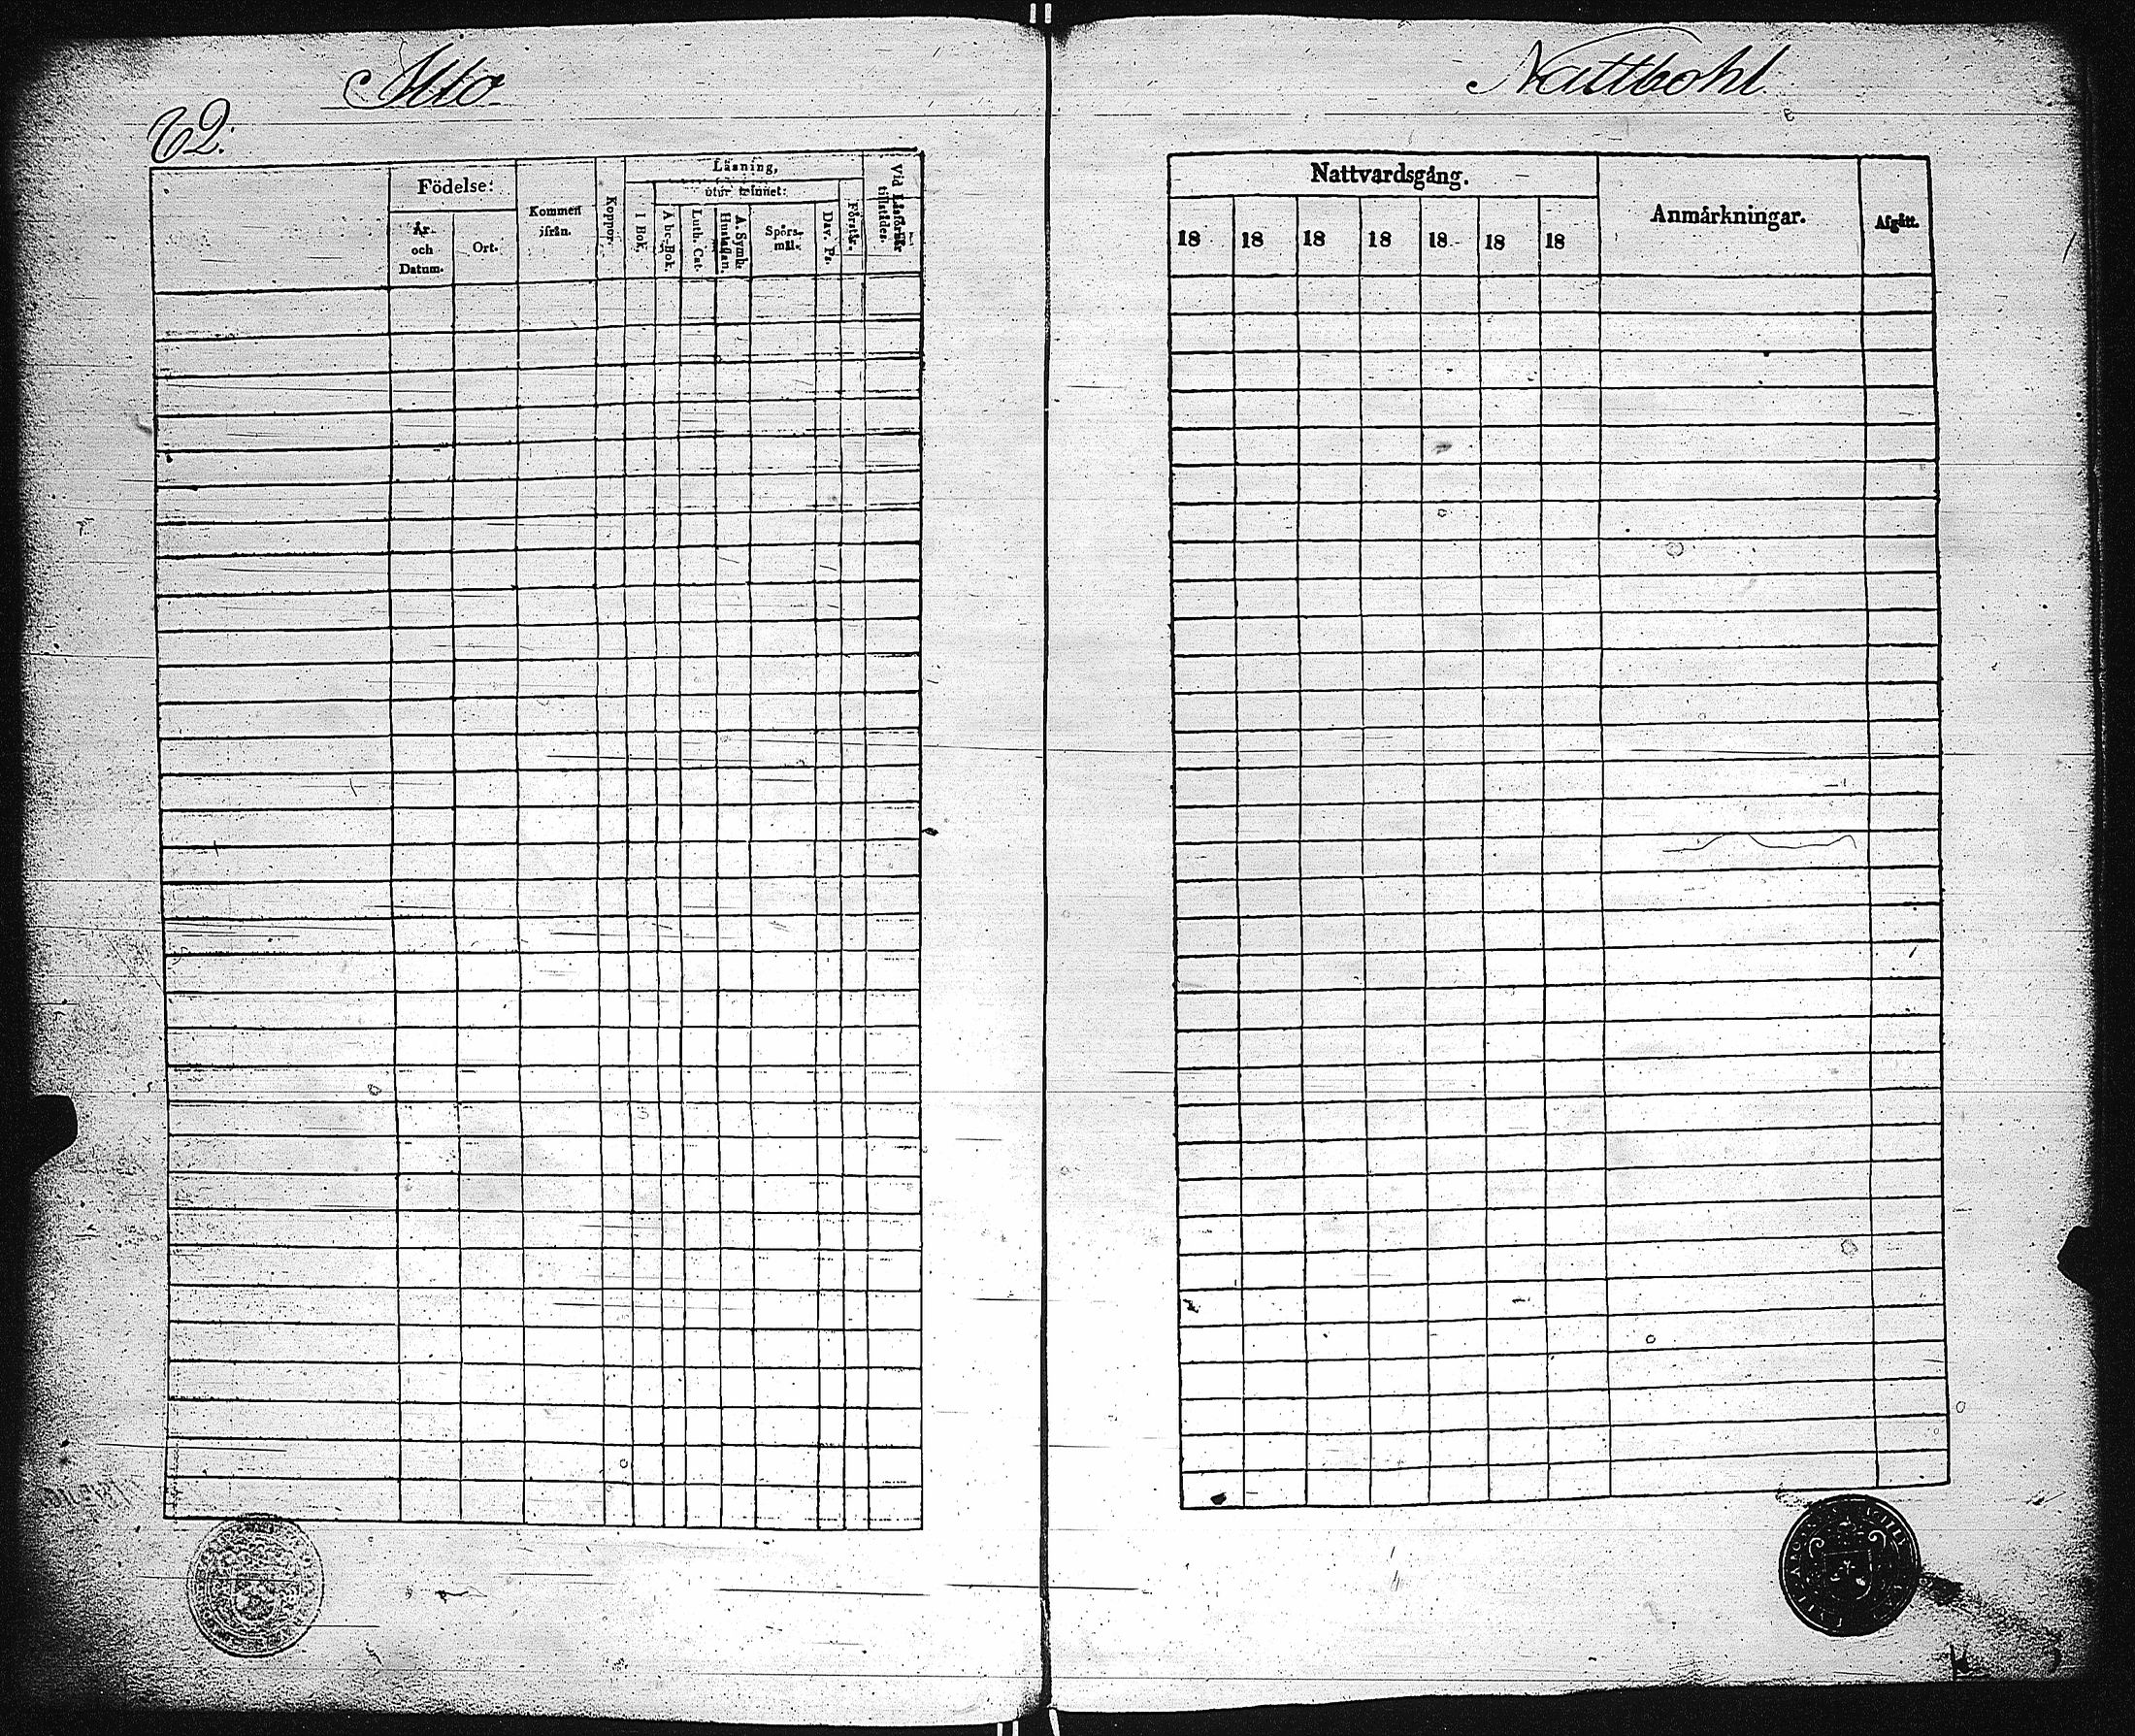 Alla Nattbohl
62.
Läsning,
Födelse: utur minnet:
År och Datum. Ort. Kommen ifrån. Koppor. I Bok. A bc-Bok. Luth. Cat. A. Symb. Hustaflan. Spörsmål. Dav. Ps. Förstår. Vid Läsförhör tillstädes.
Nattvardsgång. Anmärkningar. Afgått.
18 18 18 18 18 18 18